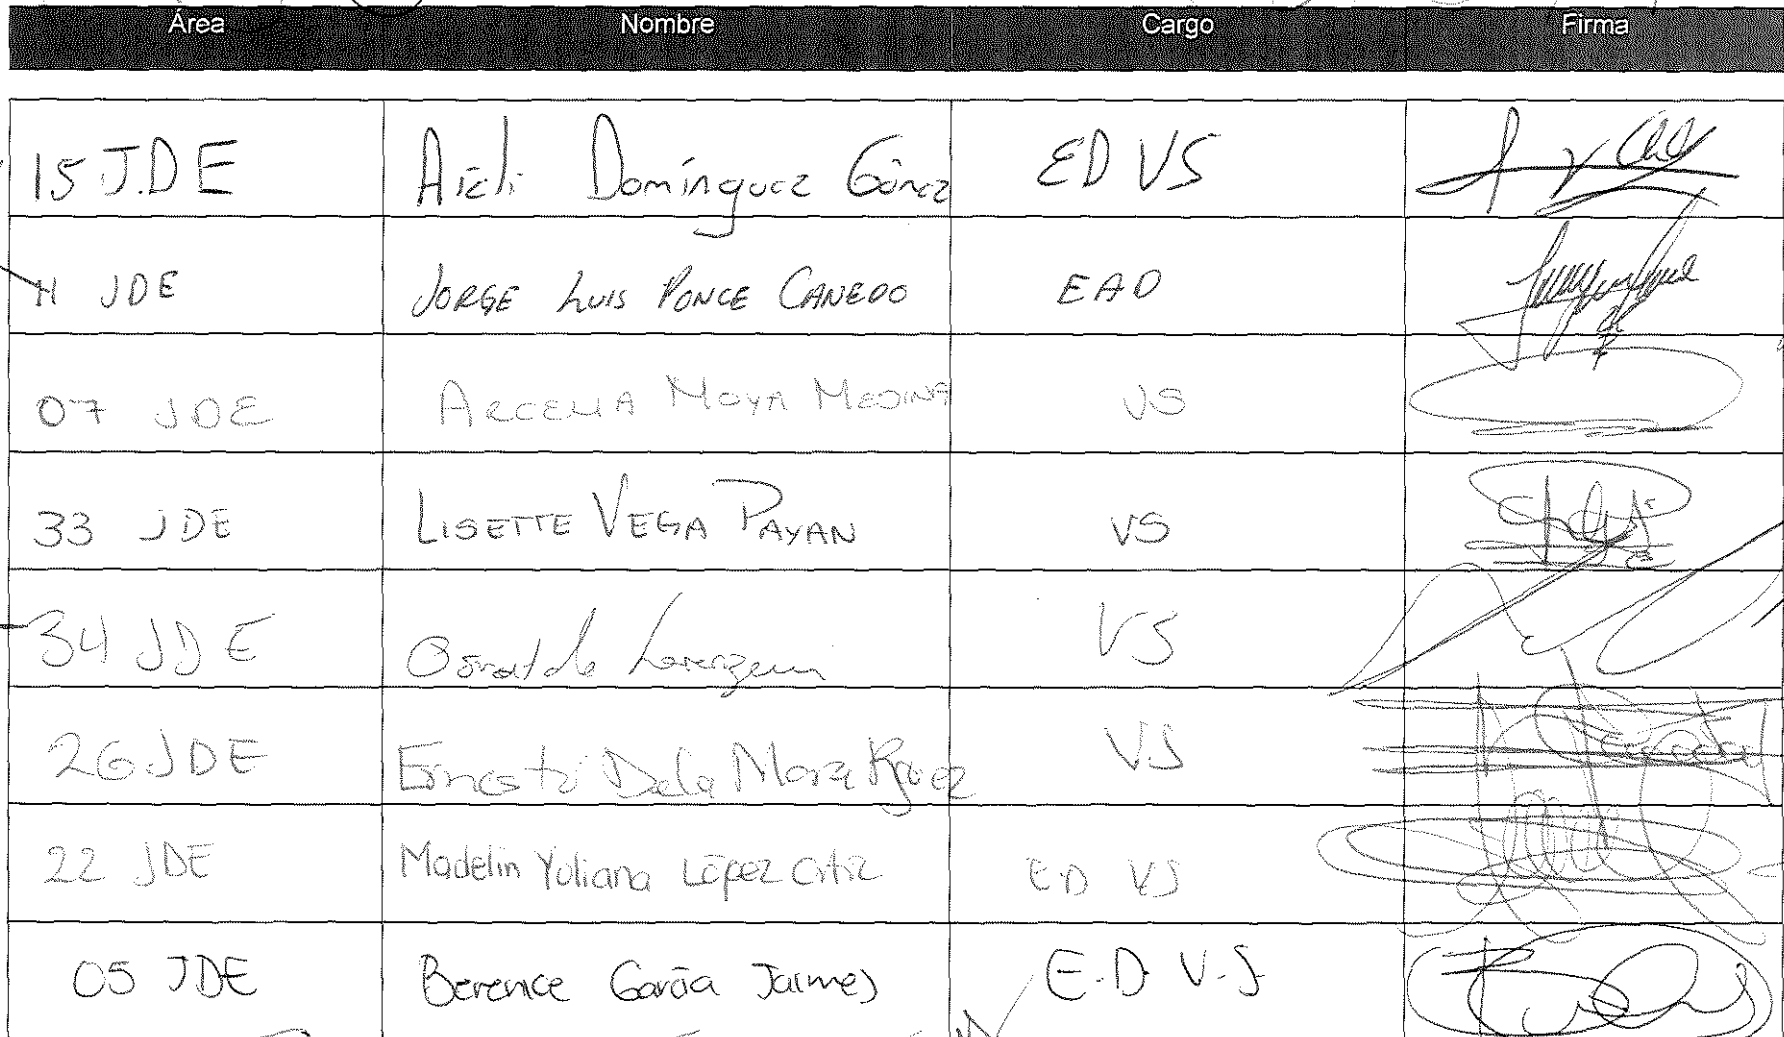 Área Nombre Cargo Firma
15 J.D E Aidi Domínguez Gómez ED VS
11 JDE JORGE LUIS PONCE CANEDO EAD
07 JDE ARCELIA MOYA MEDINA VS
33 JDE LISETTE VEGA PAYAN VS
34 JDE Osvaldo Lorenzen VS
26 JDE Ernesto De la Mora VS
22 JDE Madelin Yuliana López Ortiz E.D VS
05 JDE Berenice García Jaimes E.D. V.S